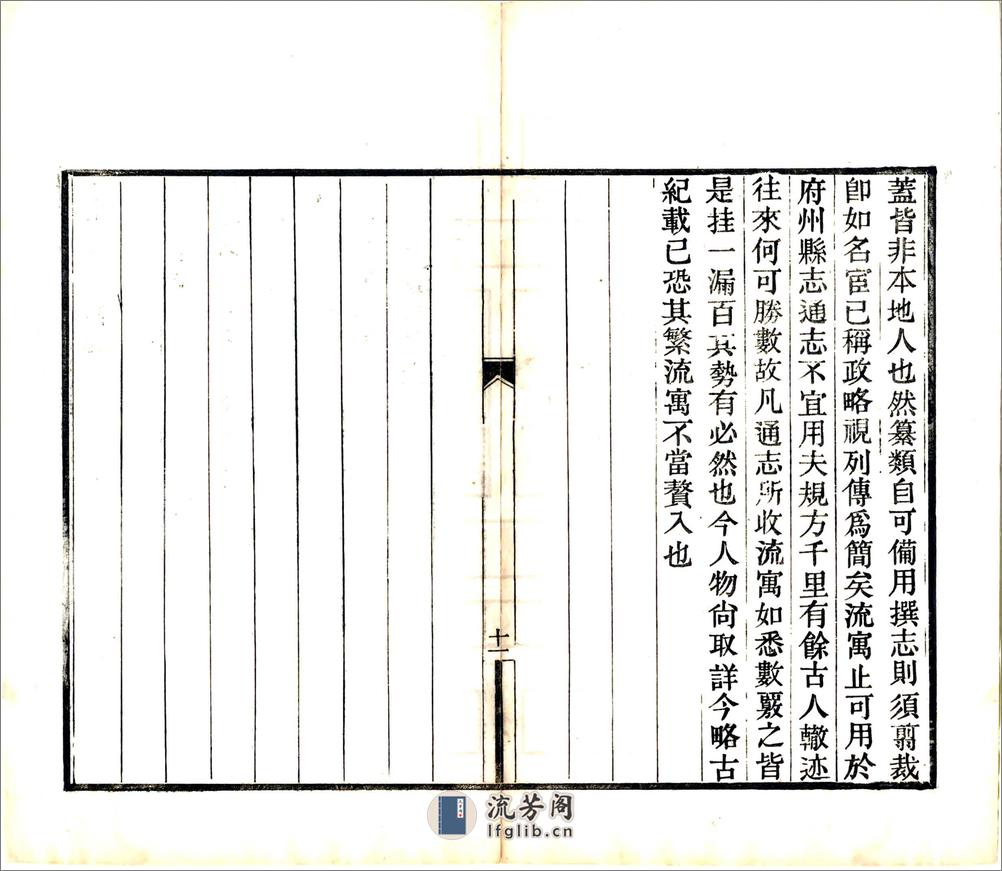 蓋皆非本地人也然纂類自可備用撰志則須翦裁
卽如名宦已稱政略視列傳爲簡矣流寓止可用於
府州縣志通志不宜用夫規方千里有餘古人轍迹
往來何可勝數故凡通志所收流寓如悉數覈之皆
是挂一漏百其勢有必然也今人物尙取詳今略古
紀載已恐其繁流寓不當贅入也
十一
流芳阁
lfglib.cn